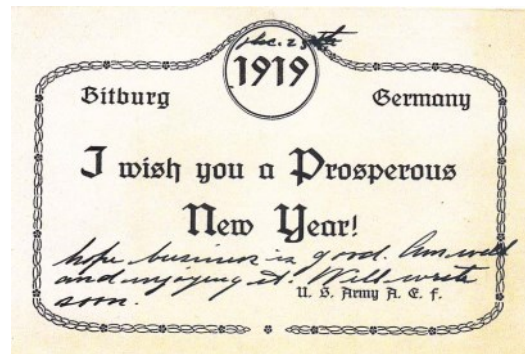 Dec. 28th
1919
Bitburg Germany
I wish you a Prosperous
New Year!
hope business is good. Am well
and enjoying it. Will write
soon.
U. S. Army A. E. F.